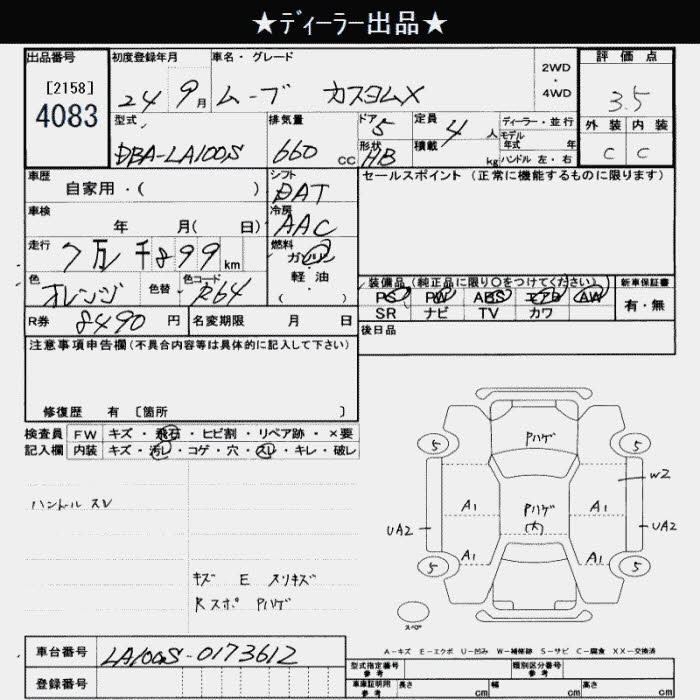 ★ディーラー出品★
出品番号
[2158]
4083
初度登録年月
24 9月
車名・グレード
ムーブ カスタムX
2WD
・
4WD
評価点
3.5
外装 内装
C C
型式
DBA-LA100S
排気量
660 cc
ドア 5
形状 HB
定員 4 人
積載 kg
ディーラー・並行
モデル年式 年
ハンドル 左・右
車歴
自家用・( )
シフト
DAT
セールスポイント (正常に機能するものに限ります)
車検
年 月( 日)
冷房
AAC
走行
7万 千899 km
燃料
ガソリン
・
軽油
( )
色
オレンジ
色替
色コード
R64
装備品 (純正品に限り○をつけてください)
PS PW ABS エアB AW
SR ナビ TV カワ
新車保証書
有・無
R券 8490 円
名変期限 月 日
後日品
注意事項申告欄(不具合内容等は具体的に記入して下さい)
修復歴 有 [箇所 ]
検査員 FW キズ・飛石・ヒビ割・リペア跡・×要
記入欄 内装 キズ・汚レ・コゲ・穴・スレ・キレ・破レ
ハンドル スレ
キズ E スリキズ
Rスポ Pハゲ
Pハゲ
5 5
W2
A1 Pハゲ A1
(大)
UA2 UA2
A1 A1
5 5
スペア
A-キズ E-エクボ U-凹み W-補修跡 S-サビ C-腐食 XX-交換済
車台番号 LA100S-0173612
登録番号
型式指定番号
参考
類別区分番号
参考
車庫証明用
参考
長さ cm 幅 cm 高さ cm